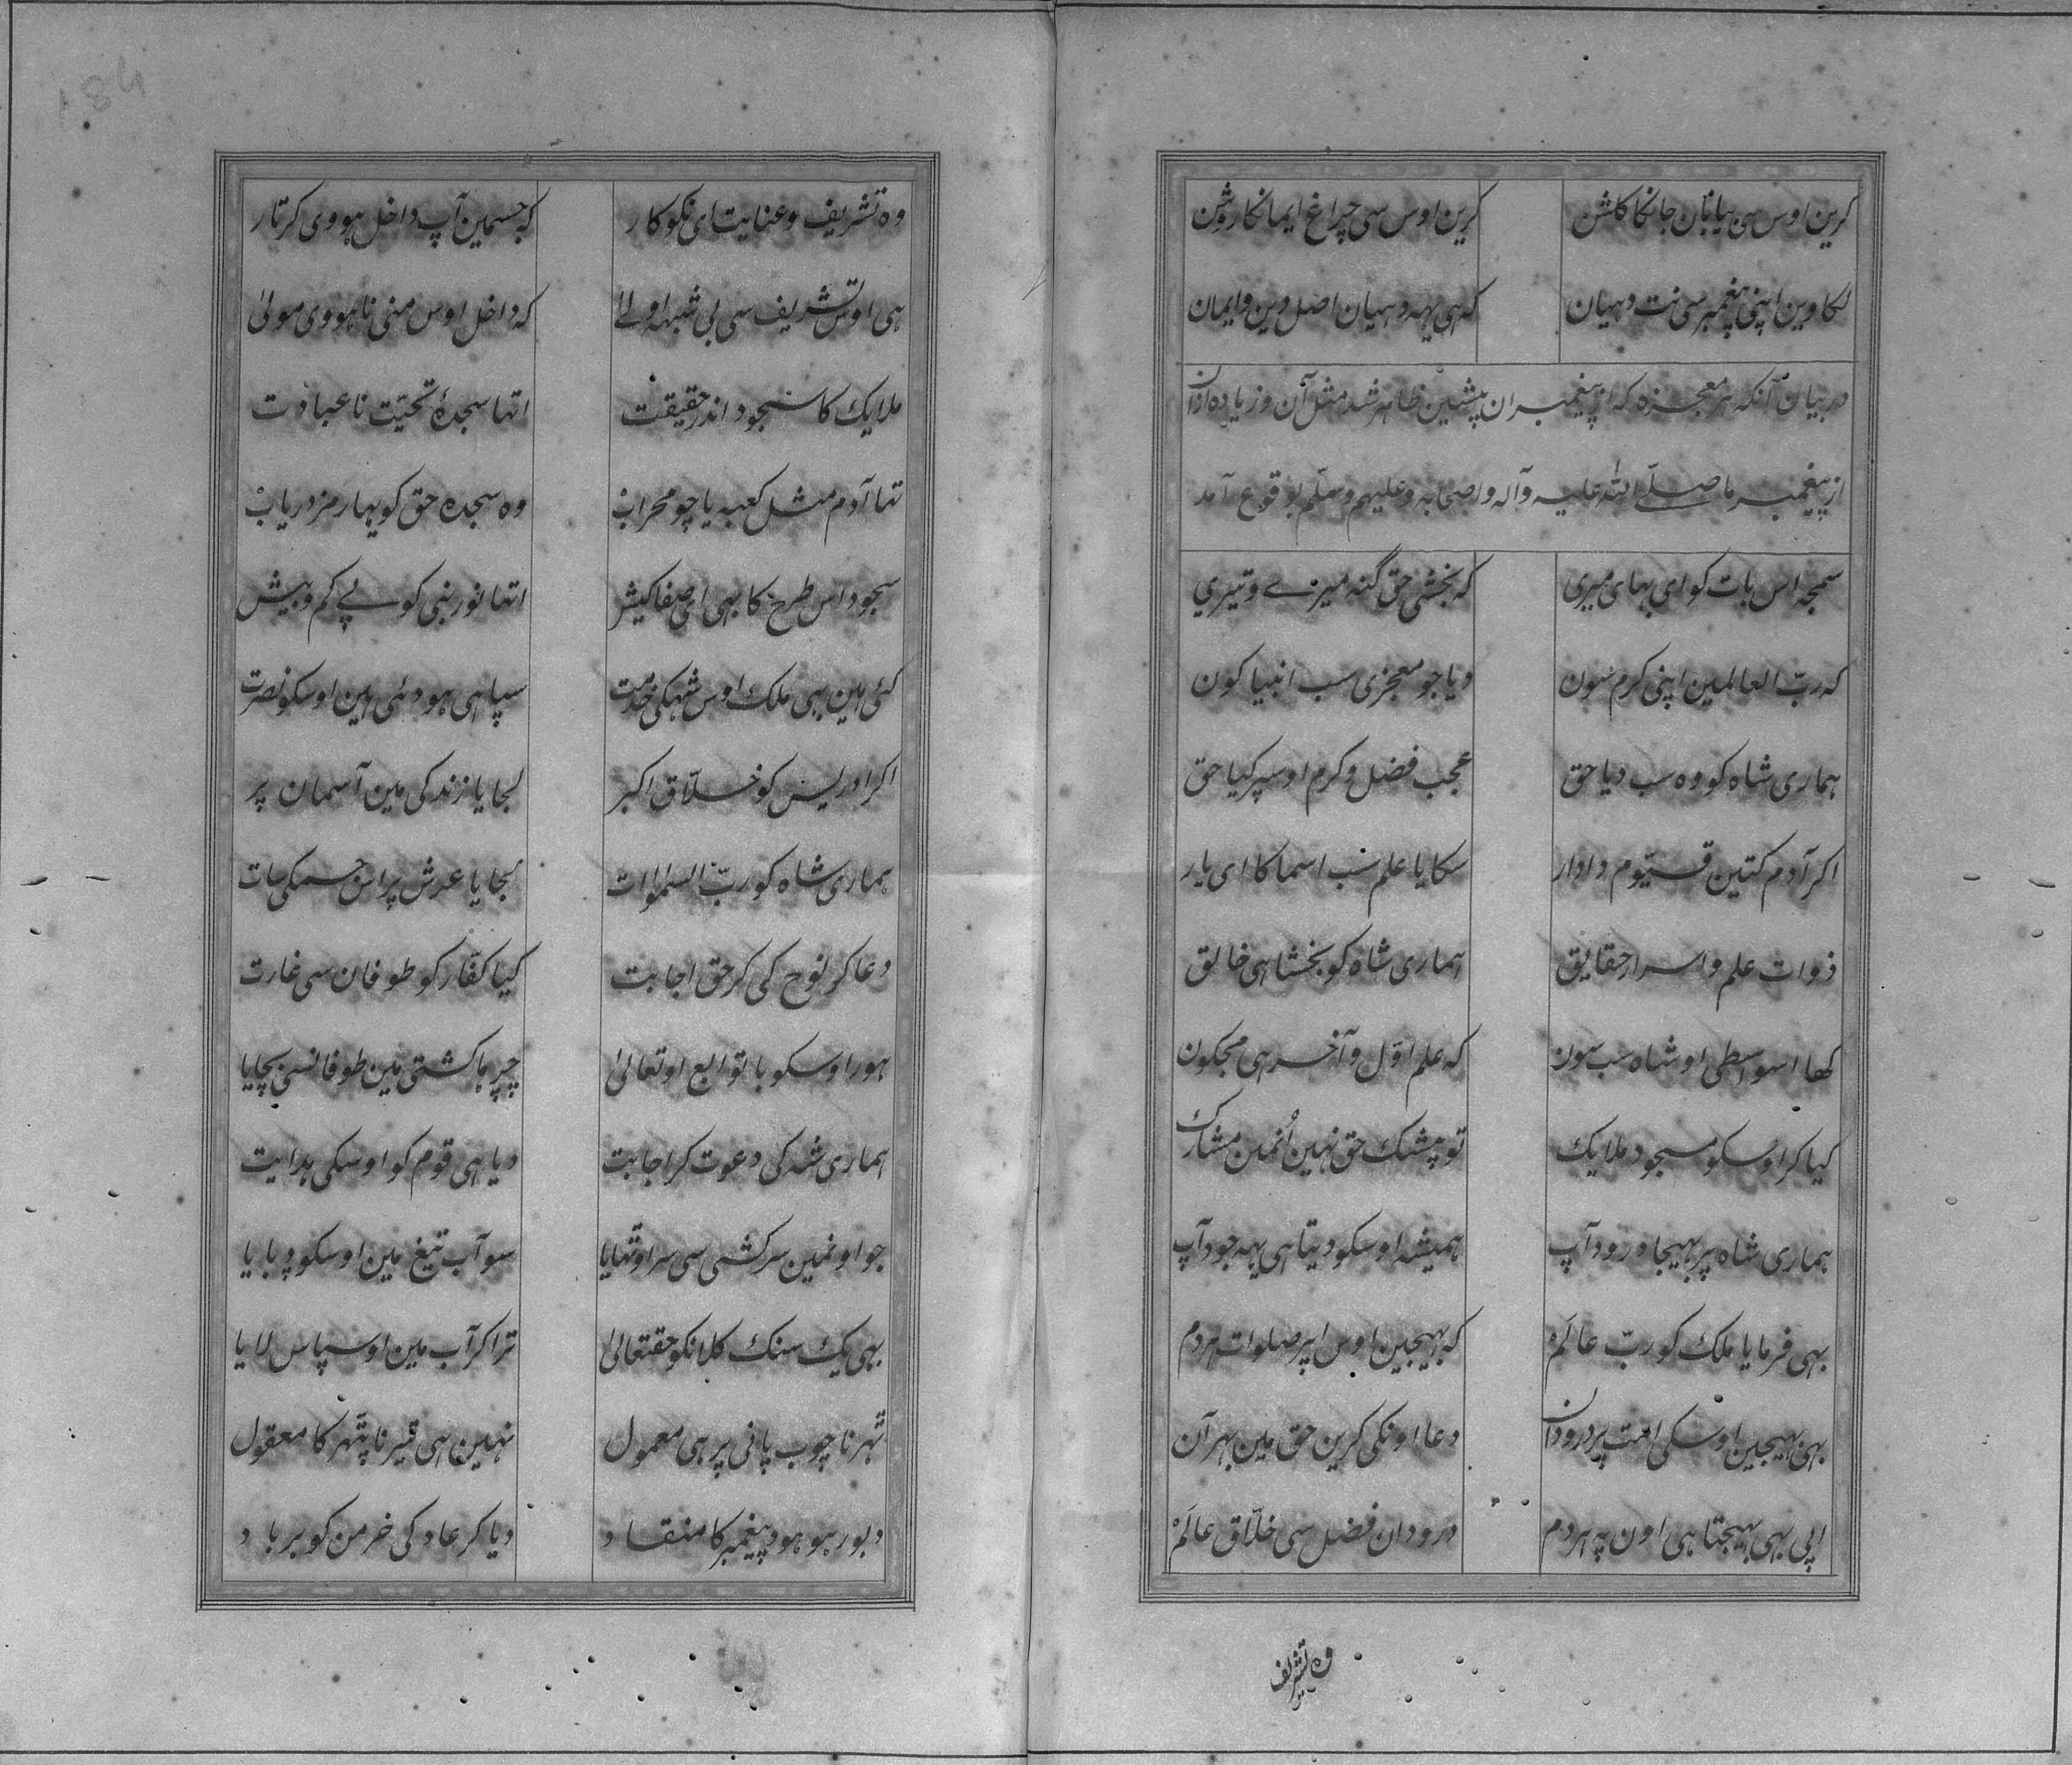 کرین اوس سی بیابان جانکا کلشن کرین اوس سی چراغ ایمانکا روشن
لکاوین اپنی پیغمبر سی نت دهیان که هی یهه دهیان اصل دین و ایمان
در بیان آنکه هر معجزه که از پیغمبران پیشین ظاهر شد مثل آن و زیاده ازان
از پیغمبر ما صلّے اللّه علیه وآله واصحابه وعلیهم وسلّم بوقوع آمد
سمجه اس بات کو ای بهای میری که بخشی حق گنه میرے و تیري
که ربّ العالمین اپنی کرم سون دیا جو معجزی سب انبیا کون
هماری شاه کو وه سب دیا حق عجب فضل و کرم اوسپر کیا حق
اکر آدم کتین قیّوم دادار سکایا علم سب اسما کا ای یار
ذوات علم و اسرار حقایق هماری شاه کو بخشا هی خالق
کها اسواسطی او شاه سب سون که علم اوّل و آخر هی مجکون
کیا کر اوسکو مسجود ملایک تو بیشک حق نهین اُنمین مشارک
هماری شاه پر بهیجا درود آپ همیشه اوسکو دیتا هی یهه جود آپ
بهی فرمایا ملک کو ربّ عالَمْ که بهیجین اوس اپر صلوات هردم
بهی بهیجین اوسکی امّت پر درودان دعا اونکی کرین حق مین بهر آن
اپی بهی بهیجتا هی اون په هردم درودان فضل سی خلّاق عالَمْ
وه تشریف
وه تشریف و عنایت ای نکوکار که جسمین آپ داخل هووی کرتار
هی اوس تشریف سی بی شبهه اولےٰ که داخل اوس منی نا هووی مولیٰ
ملایک کا سجود اندر حقیقت اتها سجدۀ تحیّت نا عبادت
تها آدم مثل کعبه یا چو محرابْ وه سجده حق کو تها رمز دریابْ
سجود اس طرح کا بهی ای صفا کیش اتها نور نبی کو بے کم و بیش
کئی هین بهی ملک اوس شهکی خدمت سپاهی هو دئی هین اوسکو نصرت
اکر ادریس کو خلّاق اکبر لجایا زندکی مین آسمان پر
هماری شاه کو ربّ السموات لجایا عرش پر اس جسمکی سات
دعا کر نوح کی کر حق اجابت کیا کفّار کو طوفان سی غارت
هور اوسکو با توابع او تعالیٰ چڑها کشتی مین طوفانسی بچایا
هماری شه کی دعوت کر اجابت دیا هی قوم کو اوسکی هدایت
جو اونمین سرکشی سی سر اوتهایا سو آب تیغ مین اوسکو ڈبایا
بهی یک سنک کلانکو حقتعالیٰ تراکر آب مین اوسپاس لایا
تهرنا چوب پانی پر هی معمول نهین هی تیرنا پتّهر کا معقول
دبور هو هود پیغمبر کا منقاد دیا کر عاد کی خرمن کو برباد